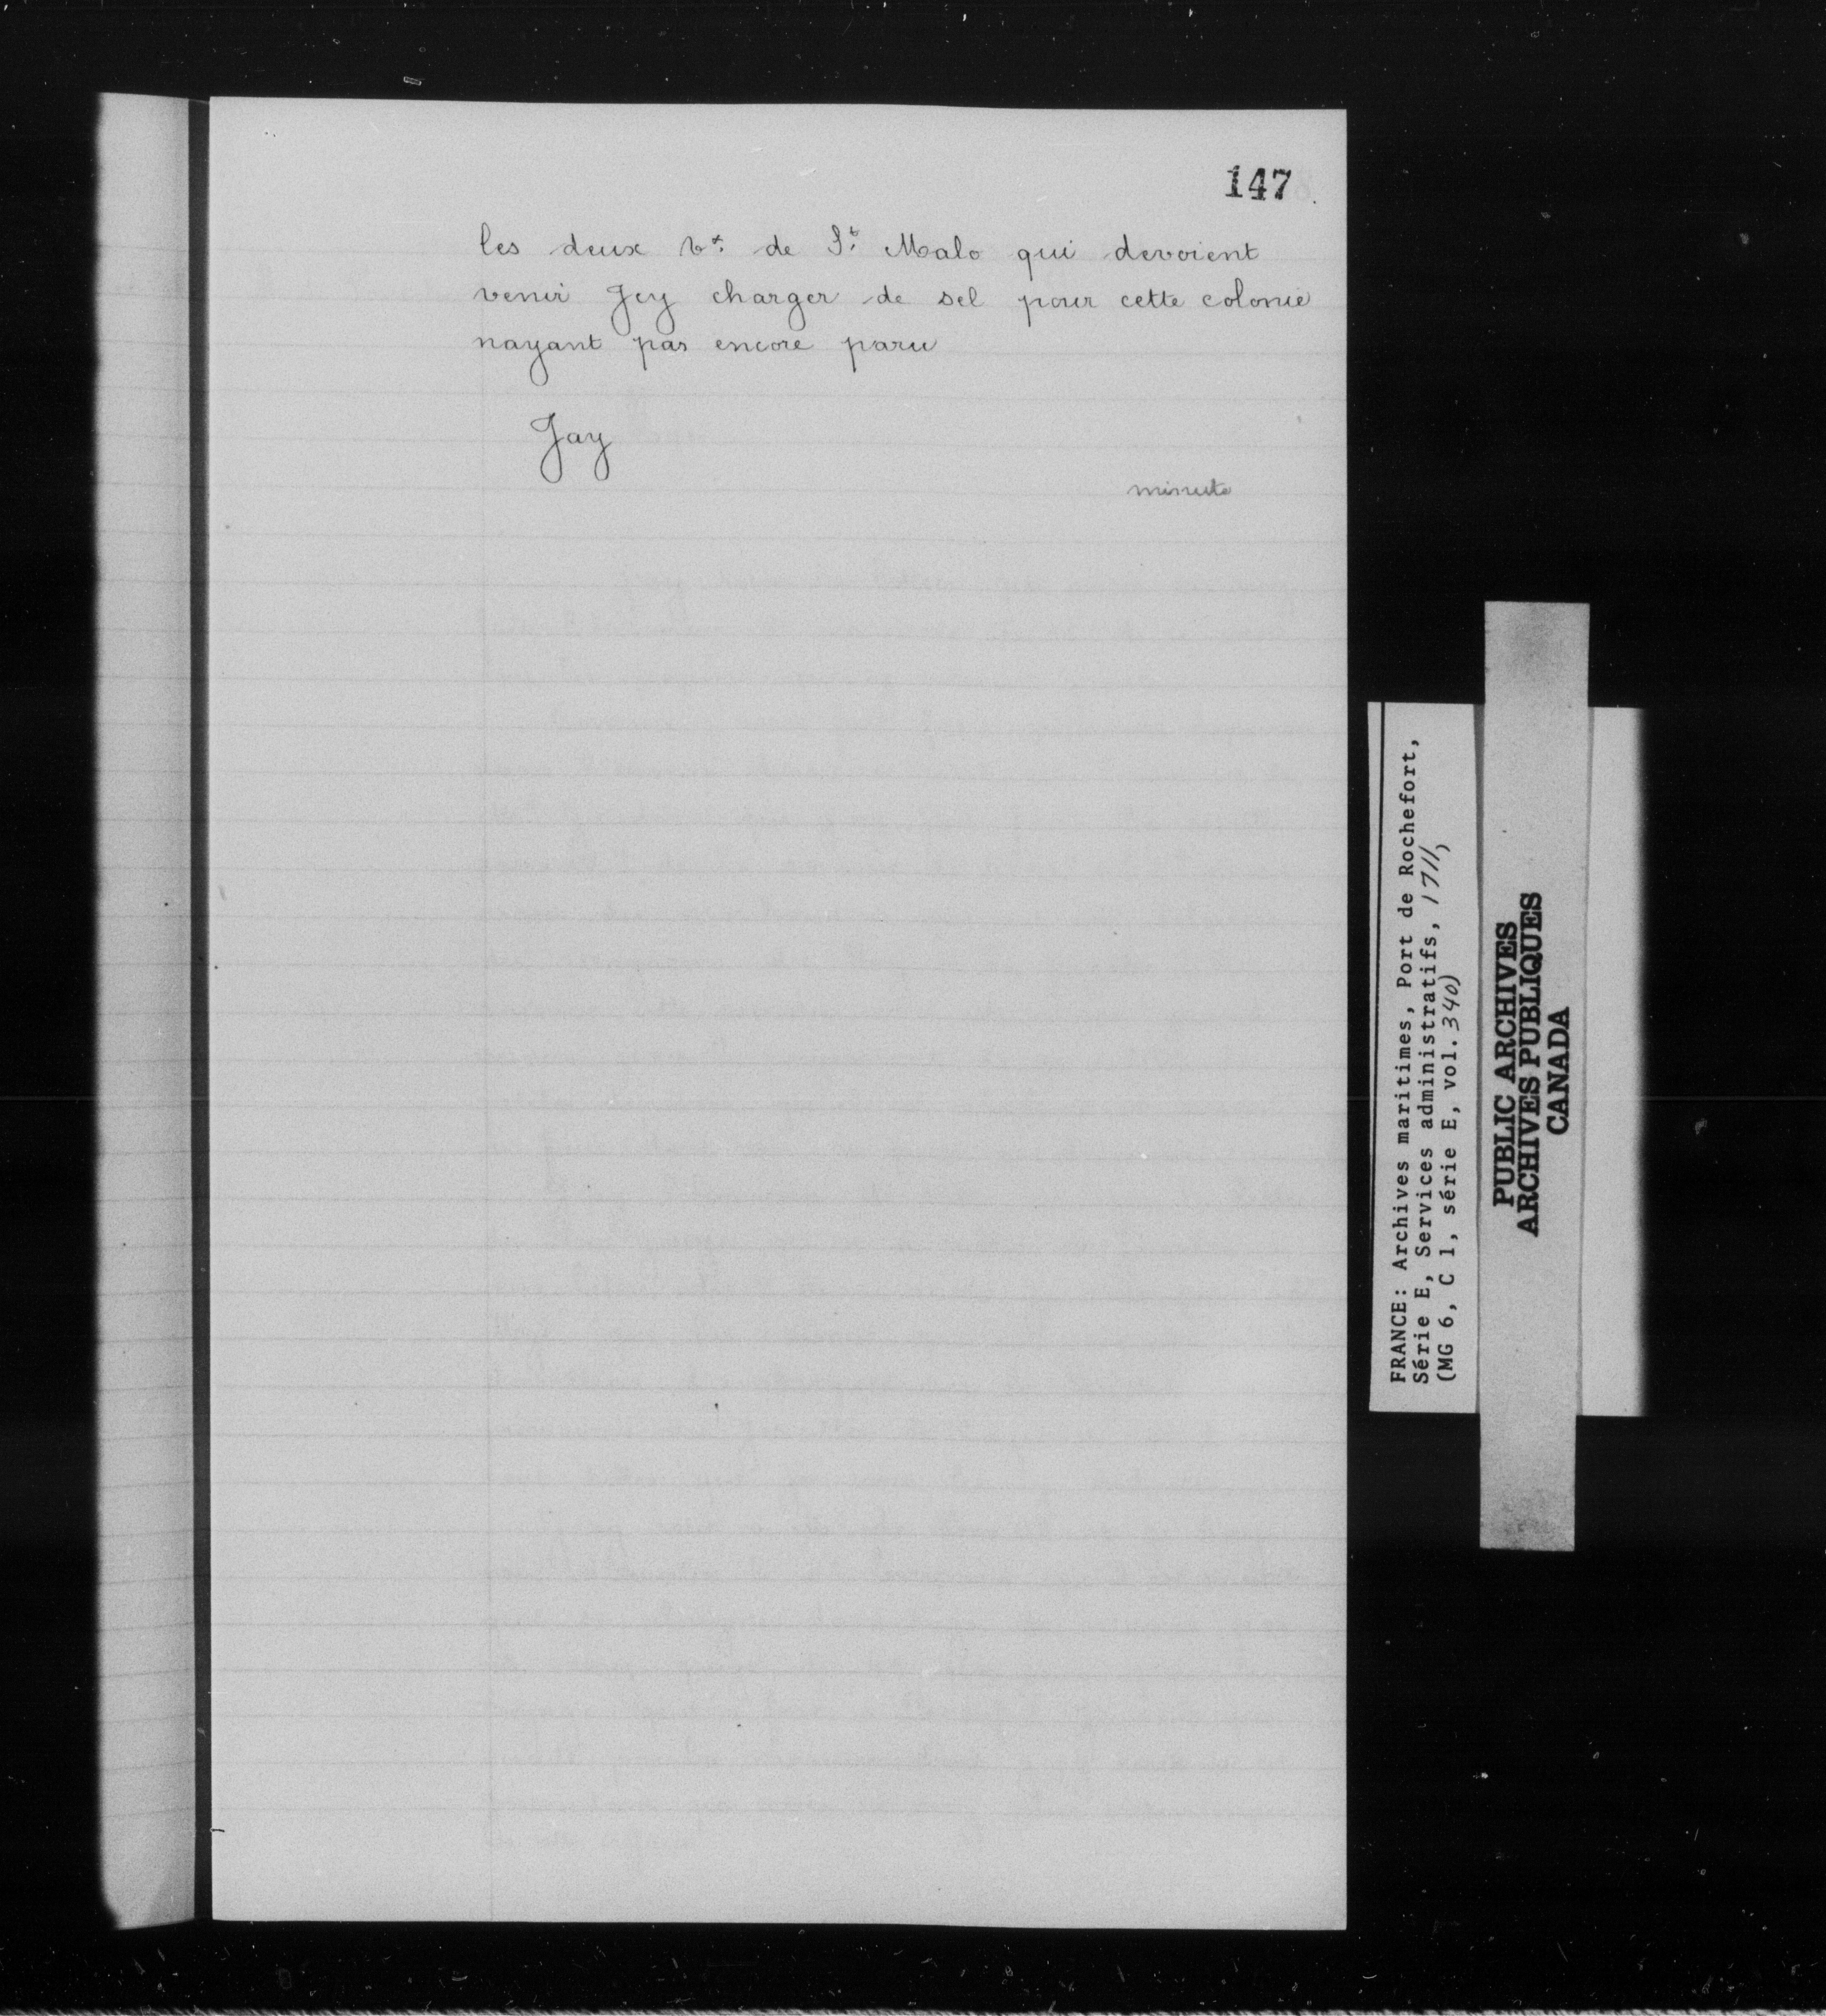 147
les deux vx. de St. Malo qui devoient
venir Icy charger de sel pour cette colonie
nayant pas encore paru
Jay
minute
FRANCE: Archives maritimes, Port de Rochefort,
Série E, Services administratifs, 1711,
(MG 6, C 1, série E, vol. 340)
PUBLIC ARCHIVES
ARCHIVES PUBLIQUES
CANADA